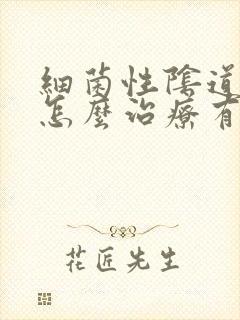 細菌性陰道
怎麼治療有
花匠先生